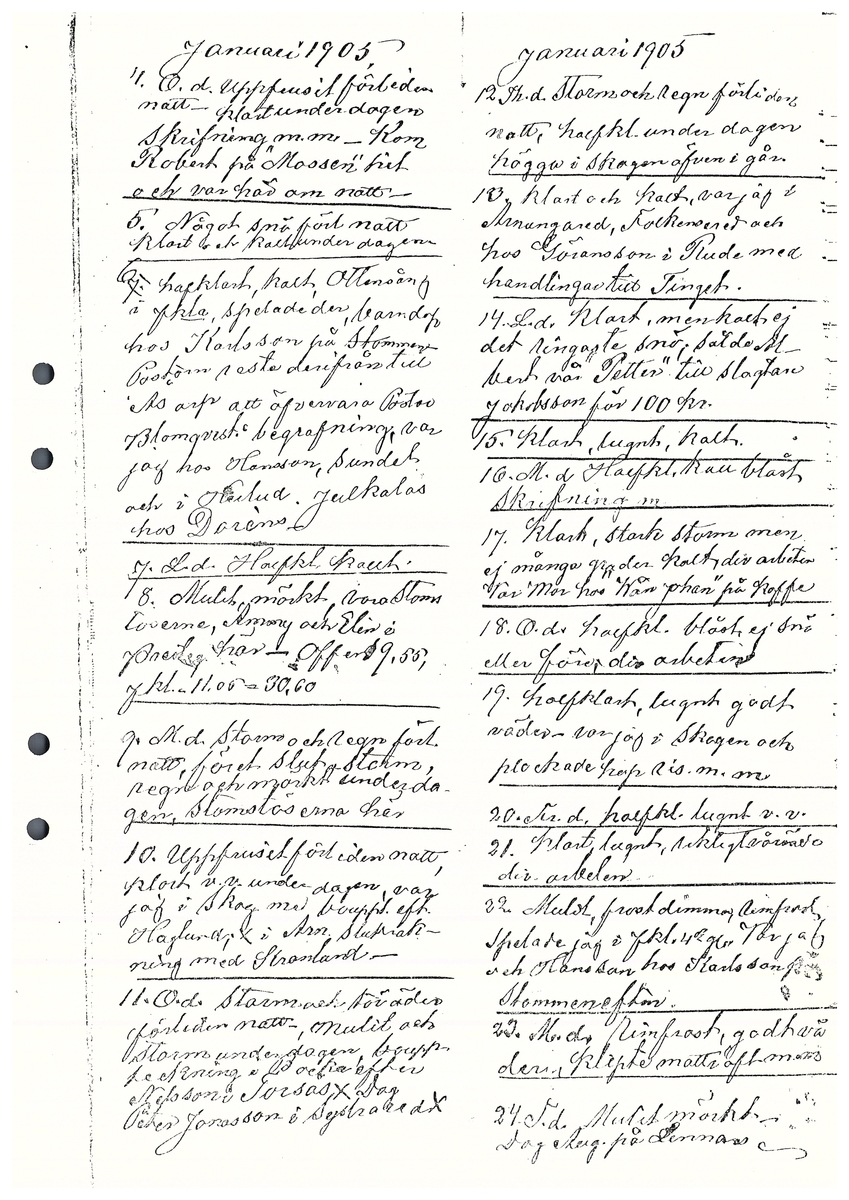 Januari 1905
4. O. d. Uppfrusit förliden
natt – klart under dagen
Skrifning m.m. – Kom
Robert på "Mossen" hit
och var här om natt –
5. Något snö förl natt
klart och kallt under dagen
halfklart, kallt, Ottesång
i ykla, spelade der, barndop
hos Karlsson på Stommen
Pastorn reste derifrån till
Ås arp att öfvervara Pastor
Blomqvists begrafning, var
jag hos Hansson, Sundet
och i Julkalas
hos Doréns –
7. L. d. Halfkl. kallt.
8. Mulit, mörkt, voro Stoms
töserna, Ammy och Elin i
här – Offer 19,55,
ykl. – 11.05 = 30,60
9. M. d. Storm och regn förl.
natt, föret slut – storm,
regn och mörkt under da-
gen, Stomstöserna här
10. Uppfrusit förliden natt,
klart v.v. under dagen, var
jag i Skog med bouppt. eft.
Haglund, x i Arn. sluträk-
ning med Kronland. –
11. O. d. Storm och töväder
förliden natt –, mulit och
storm under dagen, boupp-
teckning i efter
Nilsson i Torsås, x Dag
Peter Jonasson i Systrared x
Januari 1905
12. Th. d. Storm och regn förliden
natt, halfkl. under dagen
höggs i skogen äfven i går.
13. Klart och kallt, var jag i
Arnungared, Folkesered och
hos Göransson i Rude med
handlingar till Tinget.
14. L. d. Klart, men kallt, ej
det ringaste snö, sålde Al-
bert vår "Petter" till slagtare
Jakobsson för 100 kr.
15. Klart, lugnt, kallt.
16. M. d. Halfkl., kall blåst
Skrifning m
17. Klart, stark storm men
ej många grader kallt, div arbeten
Var Mor hos på kaffe
18. O. d. halfkl. blåst, ej snö
eller före, div arbeten
19. halfklart, lugnt godt
väder – var jag i Skogen och
plockade hop ris. m. m
20. Fr. d. halfkl. lugnt v. v.
21. Klart, lugnt, riktigt vårväder
div. arbeten
22. Mulit, frostdimma, rimfrost,
Spelade jag i ykl. Var jag
och Hansson hos Karlsson på
Stommen efter.
23. M. d. Rimfrost, godt vä
der, klipte mattr.
24. T. d. Mulit mörkt –
Dag Aug. på Lennars